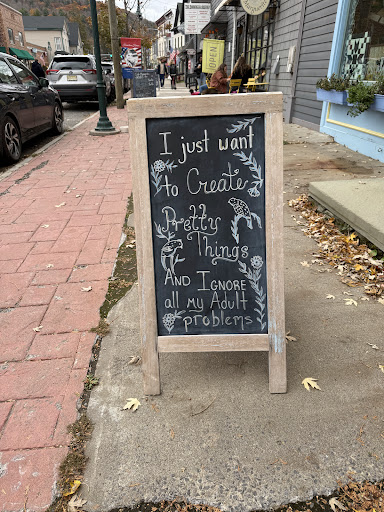 I just want
to Create
Pretty
Things
AND I IGNORE
all my Adult
problems
OPEN